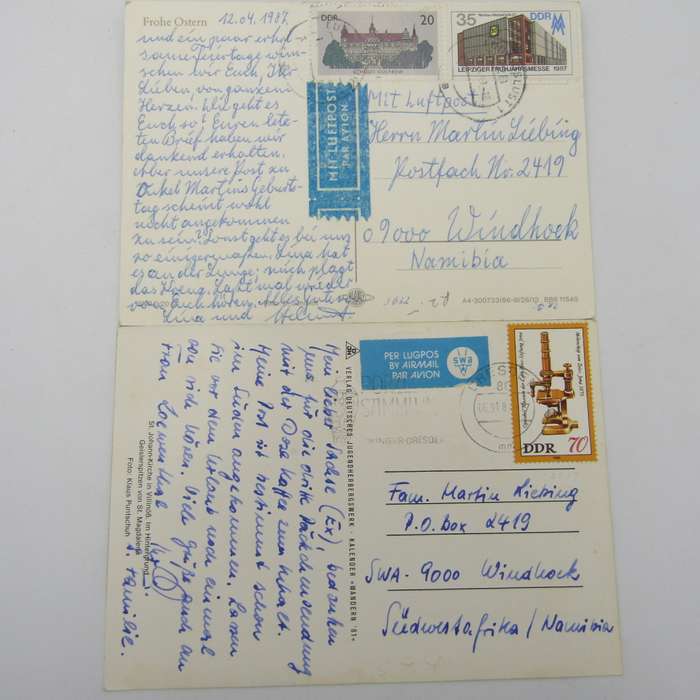 Frohe Ostern
12.04.1987
und ein paar erhol-
same Feiertage wün-
schen wir Euch, Ihr
Lieben, von ganzem
Herzen. Wie geht es
Euch so? Euren letz-
ten Brief haben wir
dankend erhalten.
Aber unsere Post zu
Onkel Martins Geburts-
tag scheint wohl
nicht angekommen
zu sein? Sonst geht es bei uns
so einigermaßen. Lina hat
es an der Lunge; mich plagt
das Herz. Laßt mal wieder
von Euch hören. Alles Gute
Lina und Helmut
DDR
20
35
DDR
LEIPZIGER FRÜHJAHRSMESSE 1987
MIT LUFTPOST
PAR AVION
Mit Luftpost
Herrn Martin Liebing
Postfach Nr. 2419
09000 Windhoek
Namibia
A4-300733/86-8/26/10
PER LUGPOS
BY AIRMAIL
PAR AVION
SWA
DDR 70
Fam. Martin Liebing
P.O. Box 2419
SWA-9000 Windhoek
Südwestafrika/Namibia
Mein lieber Sachse (Ex), bedanken
uns für die dritte Päckchensendung
mit der Dose Kaffee zum Inhalt.
Meine Post ist bestimmt schon
im Süden angekommen. Lassen
Sie vor dem Urlaub noch einmal
von sich hören. Viele Grüße auch an
Frau
u. Familie.
VERLAG DEUTSCHES JUGENDHERBERGSWERK · KALENDER »WANDERN '81«
St. Johann-Kirche in Villnöß. Im Hintergrund
Geislerspitzen von St. Magdalena
Foto: Klaus Puntschuh